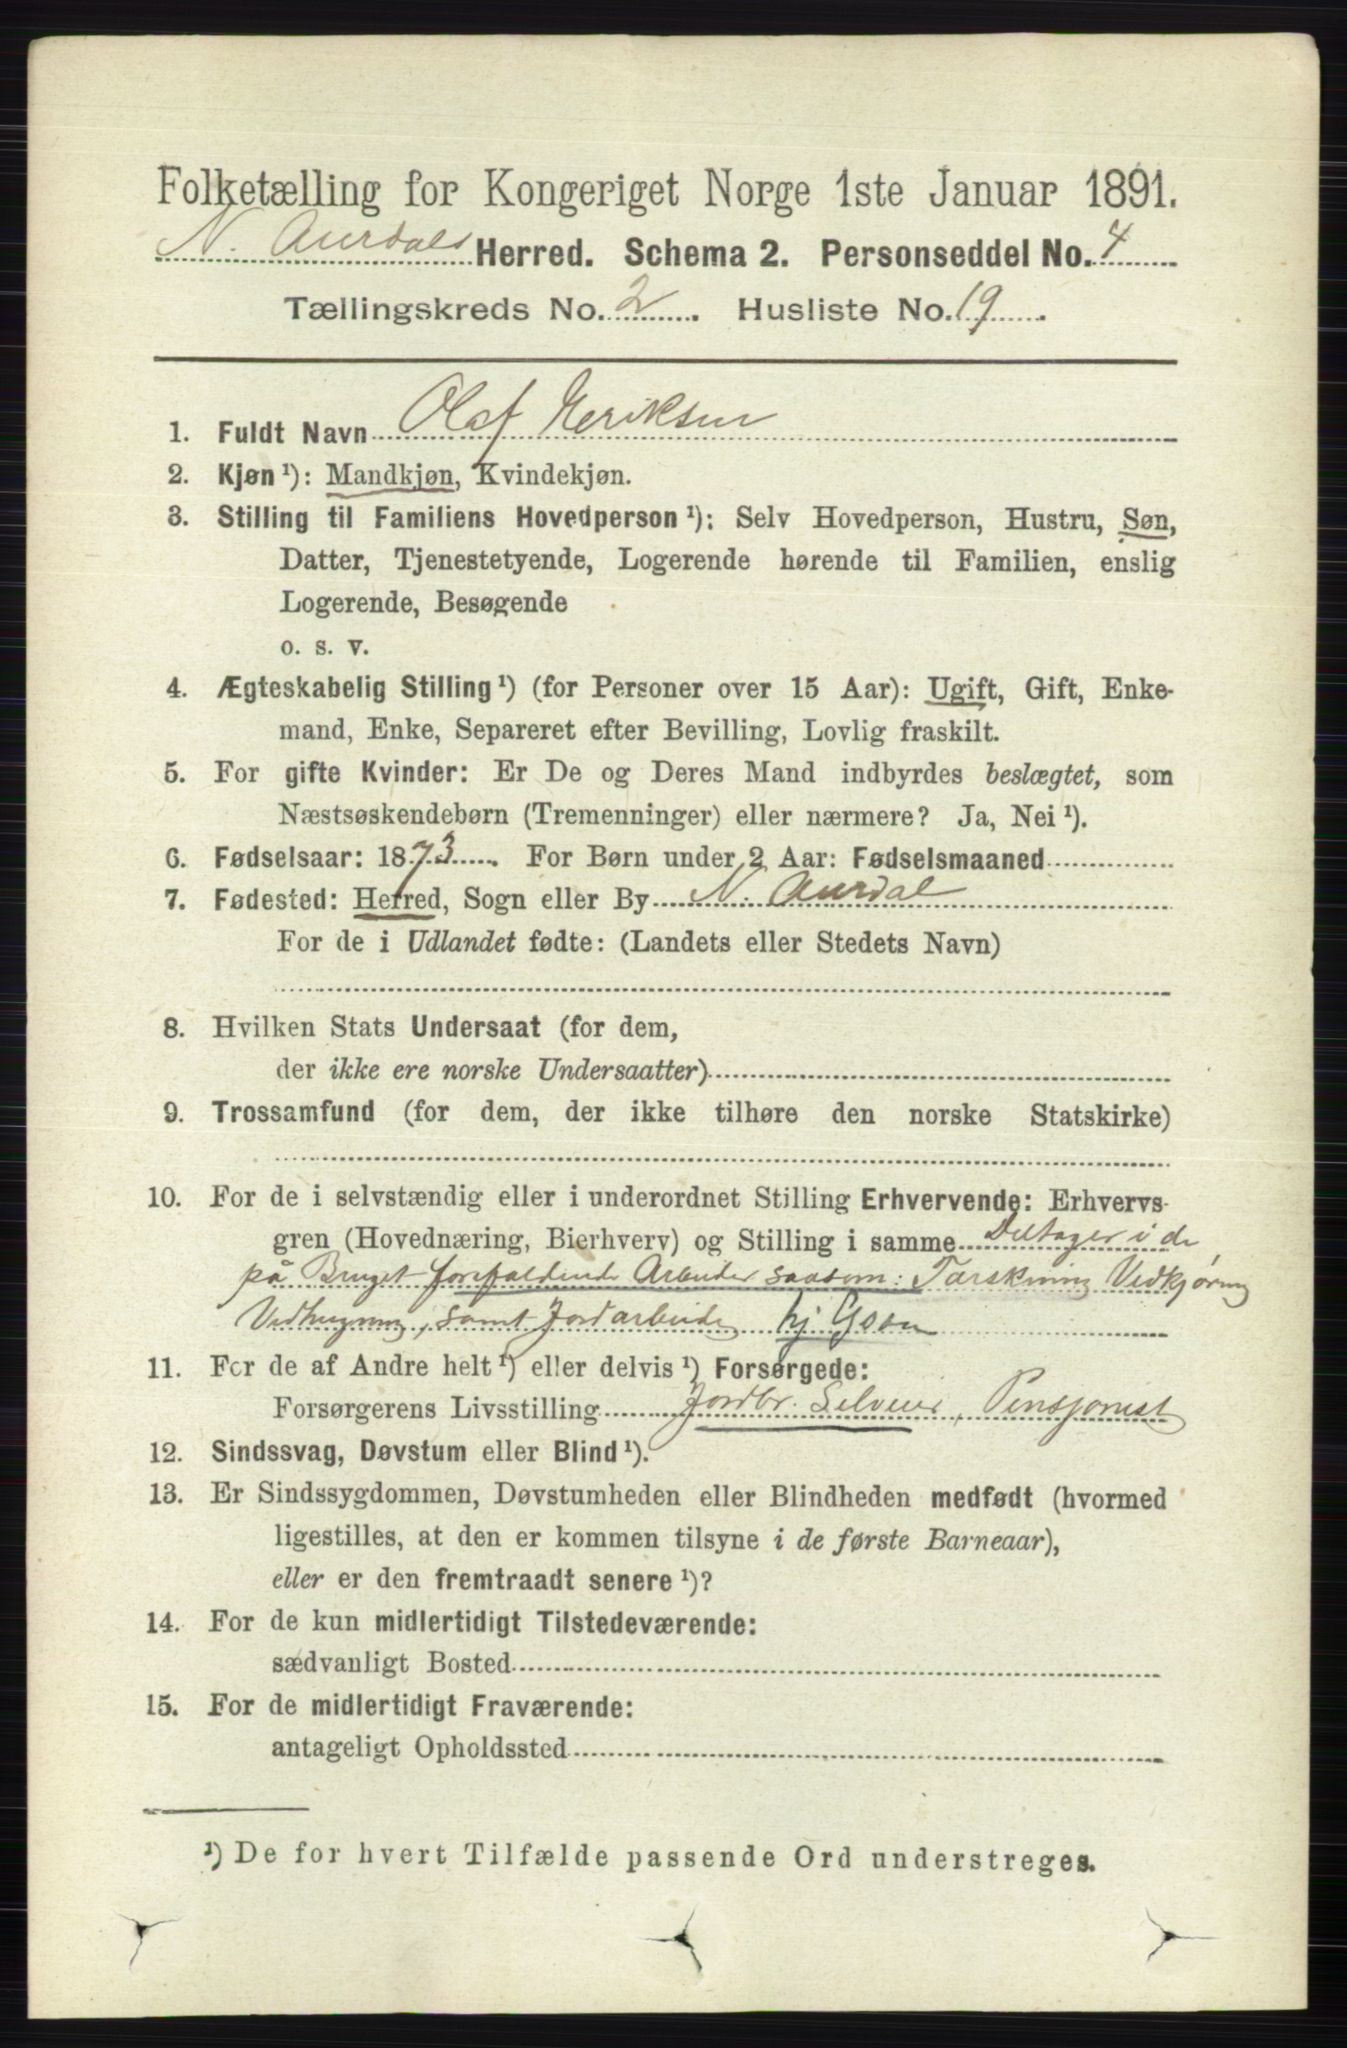 Folketælling for Kongeriget Norge 1ste Januar 1891.
N. Aurdals Herred. Schema 2. Personseddel No. 4
Tællingskreds No. 2. Husliste No. 19.
1. Fuldt Navn Olaf Eeriksen
2. Kjøn ¹): Mandkjøn, Kvindekjøn.
3. Stilling til Familiens Hovedperson ¹): Selv Hovedperson, Hustru, Søn,
Datter, Tjenestetyende, Logerende hørende til Familien, enslig
Logerende, Besøgende
o. s. v.
4. Ægteskabelig Stilling ¹) (for Personer over 15 Aar): Ugift, Gift, Enke-
mand, Enke, Separeret efter Bevilling, Lovlig fraskilt.
5. For gifte Kvinder: Er De og Deres Mand indbyrdes beslægtet, som
Næstsøskendebørn (Tremenninger) eller nærmere? Ja, Nei ¹).
6. Fødselsaar: 1873. For Børn under 2 Aar: Fødselsmaaned
7. Fødested: Herred, Sogn eller By N. Aurdal
For de i Udlandet fødte: (Landets eller Stedets Navn)
8. Hvilken Stats Undersaat (for dem,
der ikke ere norske Undersaatter)
9. Trossamfund (for dem, der ikke tilhøre den norske Statskirke)
10. For de i selvstændig eller i underordnet Stilling Erhvervende: Erhvervs-
gren (Hovednæring, Bierhverv) og Stilling i samme Deltager i de
på Bruget forefaldende Arbeider saasom: Tærskning Vedkjøring
Vedhugning, samt Jordarbeide hj
11. For de af Andre helt ¹) eller delvis ¹) Forsørgede:
Forsørgerens Livsstilling Jordbr. Selveier, Pensjonist
12. Sindssvag, Døvstum eller Blind ¹).
13. Er Sindssygdommen, Døvstumheden eller Blindheden medfødt (hvormed
ligestilles, at den er kommen tilsyne i de første Barneaar),
eller er den fremtraadt senere ¹)?
14. For de kun midlertidigt Tilstedeværende:
sædvanligt Bosted
15. For de midlertidigt Fraværende:
antageligt Opholdssted
¹) De for hvert Tilfælde passende Ord understreges.